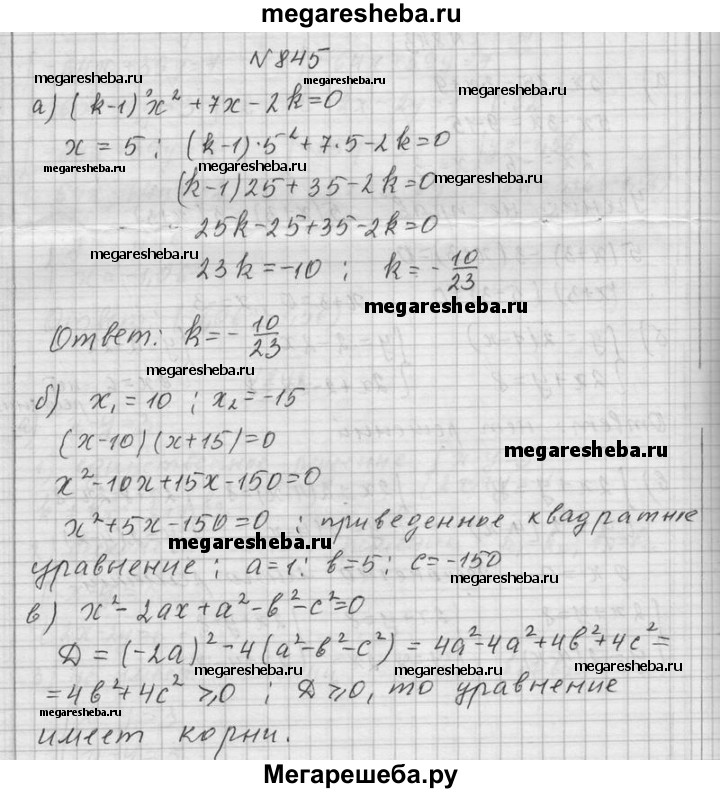 megaresheba.ru
N 845
megaresheba.ru megaresheba.ru megaresheba.ru
а) (k-1)x² + 7x - 2k = 0
x = 5 ; (k-1)·5² + 7·5 - 2k = 0
megaresheba.ru megaresheba.ru megaresheba.ru
(k-1)25 + 35 - 2k = 0
25k - 25 + 35 - 2k = 0
megaresheba.ru
23k = -10 ; k = - 10/23
megaresheba.ru
Ответ: k = - 10/23
megaresheba.ru
б) x₁ = 10 ; x₂ = -15
(x-10)(x+15) = 0
megaresheba.ru
x² - 10x + 15x - 150 = 0
x² + 5x - 150 = 0 ; приведенное квадратное
megaresheba.ru
уравнение ; a = 1 ; b = 5 ; c = -150
megaresheba.ru
в) x² - 2ax + a² - b² - c² = 0
D = (-2a)² - 4(a² - b² - c²) = 4a² - 4a² + 4b² + 4c² =
megaresheba.ru megaresheba.ru megaresheba.ru
= 4b² + 4c² ⩾ 0 ; D ⩾ 0, то уравнение
megaresheba.ru
имеет корни.
Мегарешеба.ру